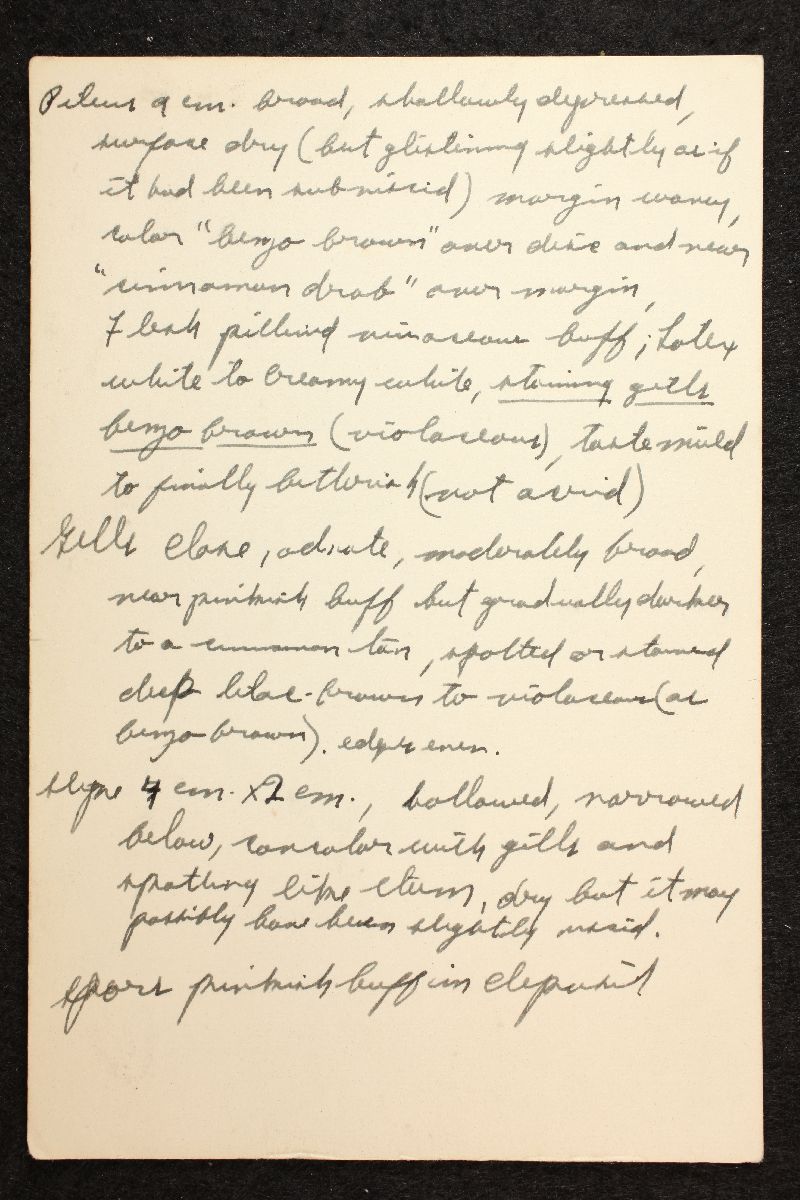 Pileus 9 cm. broad, shallowly depressed,
surface dry (but glistening slightly as if
it had been subviscid) margin wavy,
color "benzo brown" over disc and near
"cinnamon drab" over margin,
Flesh pallid vinaceous buff; Latex
white to creamy white, staining gills
benzo brown (violaceous), taste mild
to finally bitterish (not acrid)
Gills close, adnate, moderately broad,
near pinkish buff but gradually darker
to a cinnamon tan, spotted or stained
deep lilac-brown to violaceous (as
benzo brown). edges even.
stipe 4 cm. x 2 cm., hollowed, narrowed
below, concolor with gills and
spotting like them, dry but it may
possibly have been slightly viscid.
spores pinkish buff in deposit